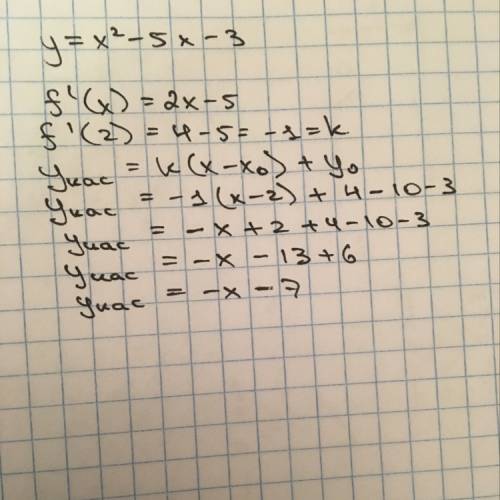 y = x² - 5x - 3
f'(x) = 2x - 5
f'(2) = 4 - 5 = -1 = k
yкас = k(x - x₀) + y₀
yкас = -1(x - 2) + 4 - 10 - 3
yкас = -x + 2 + 4 - 10 - 3
yкас = -x - 13 + 6
yкас = -x - 7